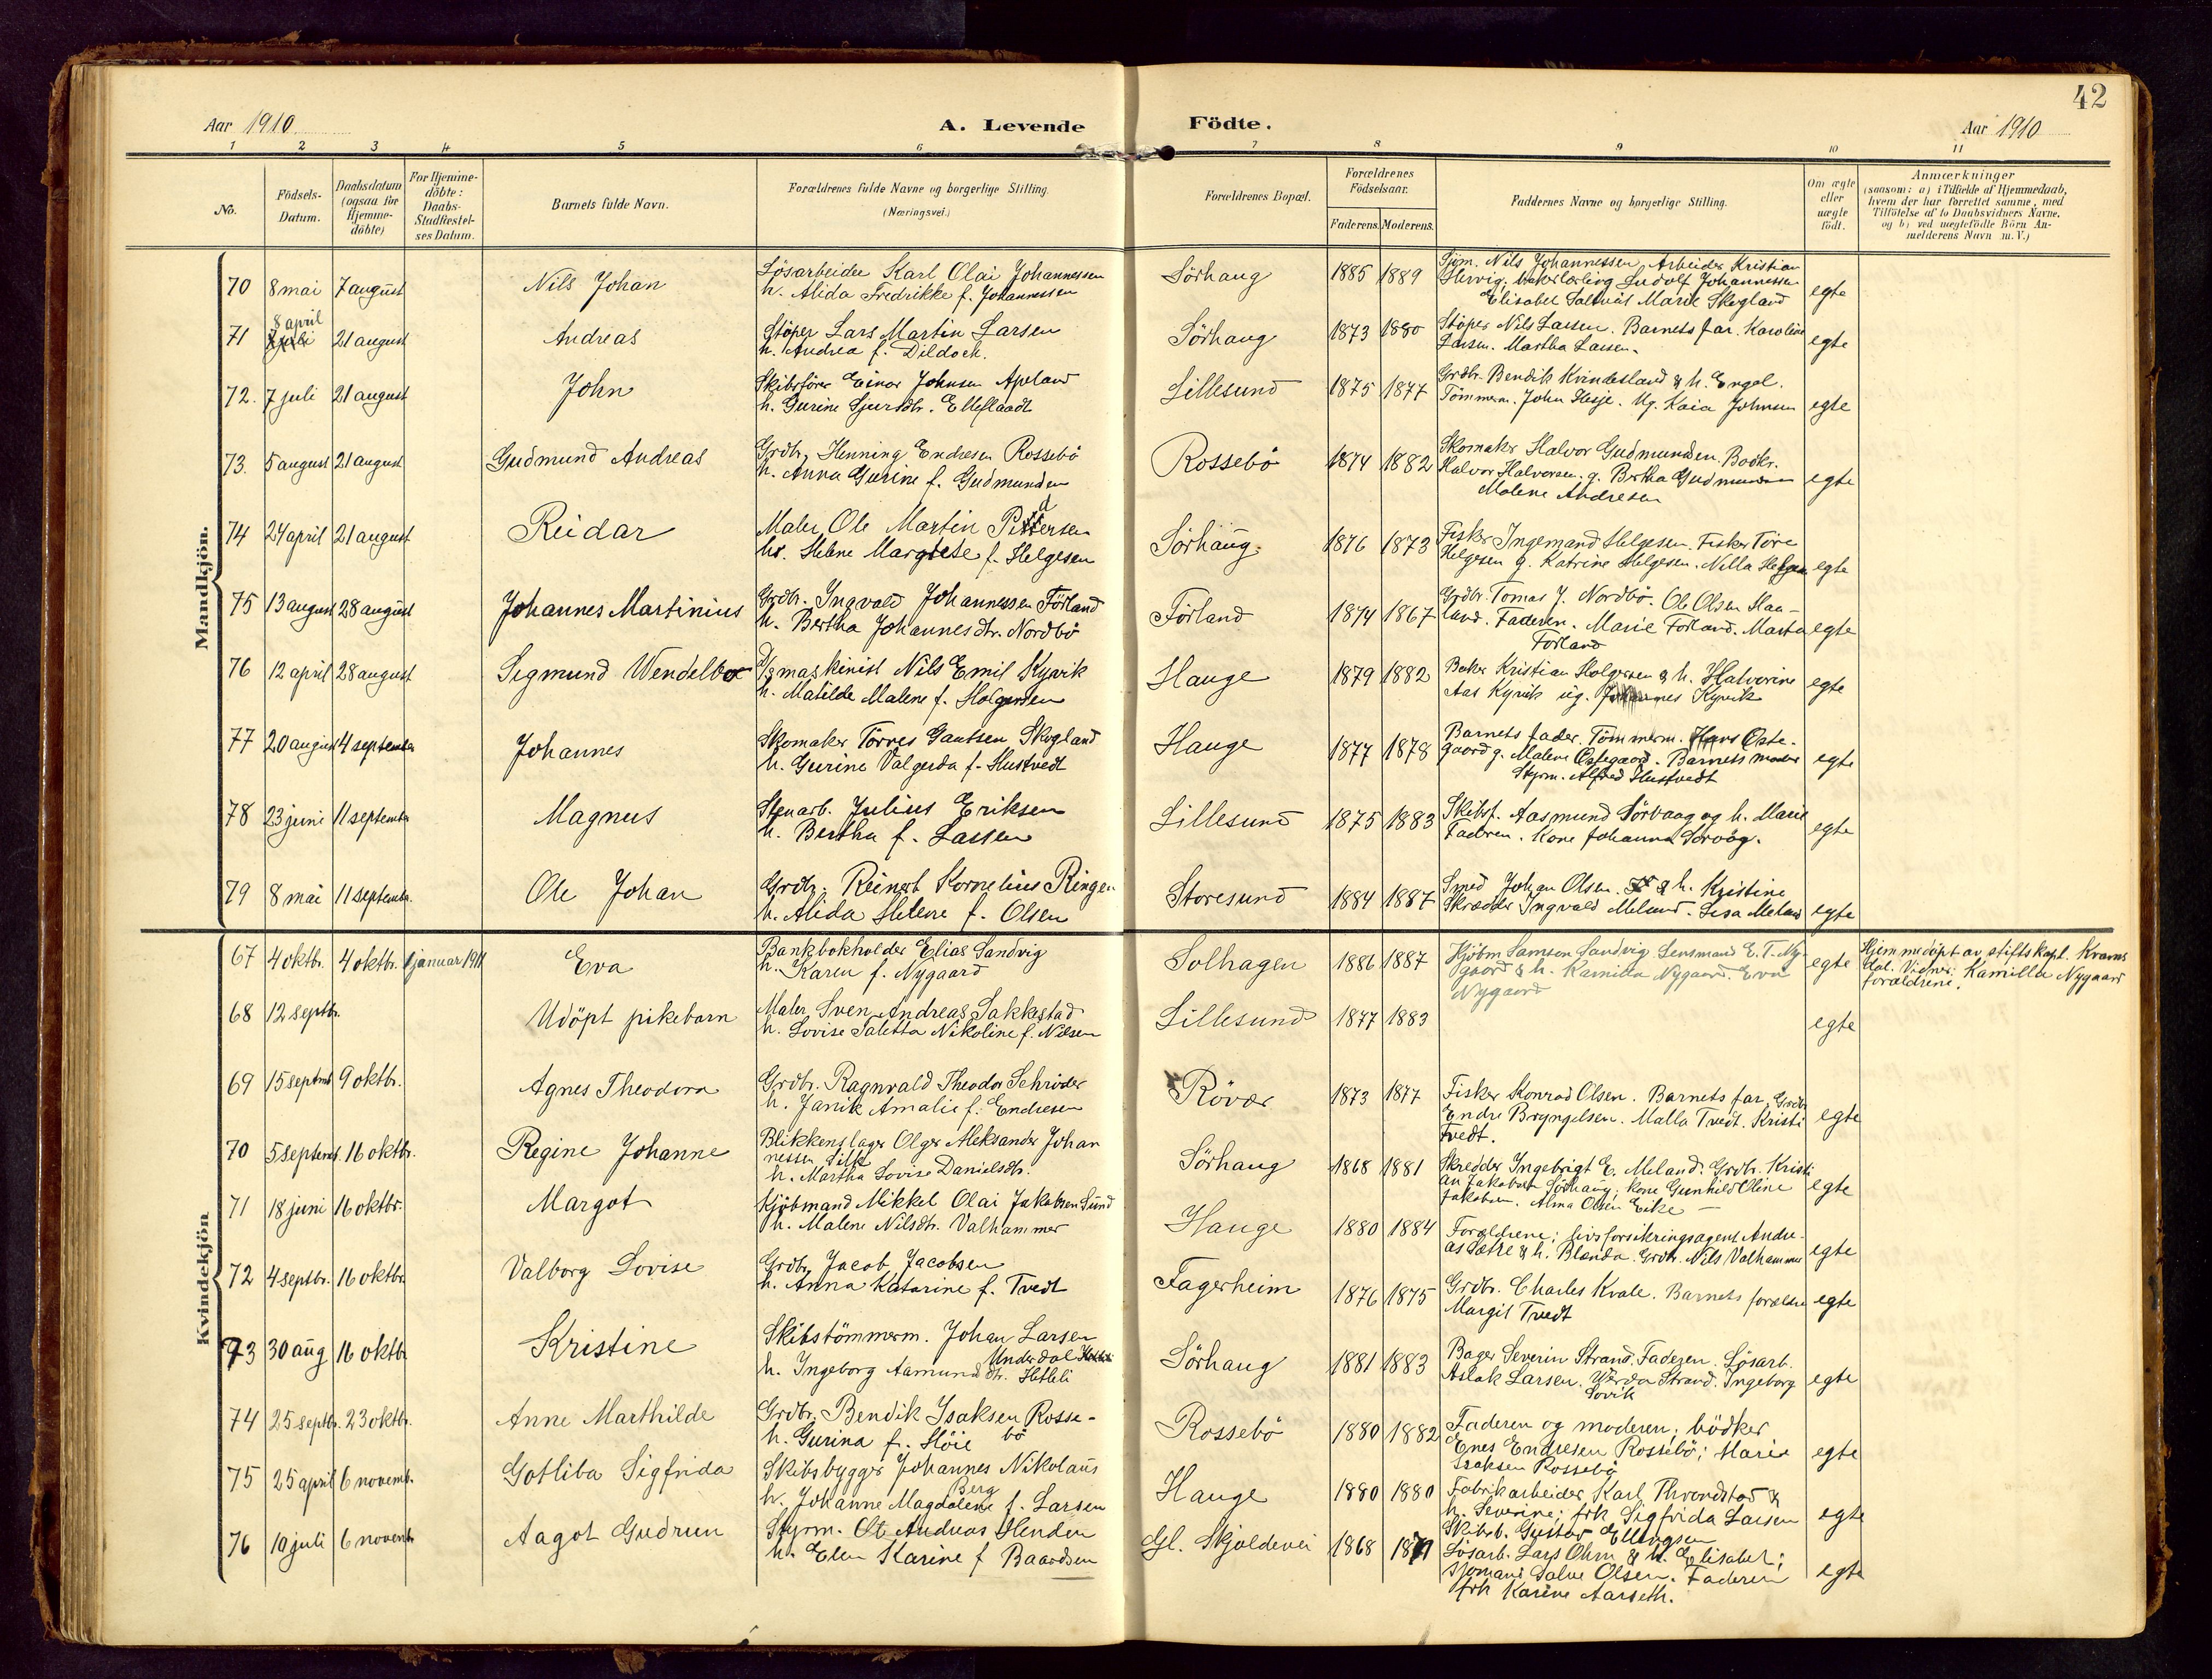 42
Aar 1910
A. Levende
Födte.
Aar 1910
1 2 3 4 5 6 7 8 9 10 11
No.
Födsels-
Datum.
Daabsdatum
(ogsaa for
Hjemme-
döbte)
For Hjemme-
döbte:
Daabs-
Stadfæstel-
ses Datum.
Barnets fulde Navn.
Forældrenes fulde Navne og borgerlige Stilling.
(Næringsvei.)
Forældrenes Bopæl.
Forældrenes
Födselsaar.
Faderens. Moderens.
Faddernes Navne og borgerlige Stilling.
Om ægte
eller
uægte
födt.
Anmærkninger
(saasom: a) i Tilfælde af Hjemmedaab,
hvem der har forrettet samme, med
Tilföielse af to Daabsvidners Navne,
og b) ved uægtefödte Börn An-
melderens Navn m.V.)
Mandkjön.
70 8 mai 7 august Nils Johan
Lösarbeider Karl Olai Johannessen
h. Alida Fredrikke f. Johannessen
Sörhaug 1885 1889
Sjöm. Nils Johannessen, Arbeider Kristian
Ludolf Johannessen
Elisabet Marie Skogland
egte
8 april
71 21 august Andreas
Stöper Lars Martin Larsen
h. Andrea f. Dildoek.
Sörhaug 1873 1880
Stöper Nils Larsen. Barnets far. Karoline
Larsen. Martha Larsen.
egte
72. 7 juli 21 august John
Skibsförer Einar Johnsen Apeland
h. Gurine Sjursdtr. Elleflaadt
Lillesund 1875 1877
Grdbr. Bendik Kvindesland & h. Engel.
Tömmerm. John Hesje. Ug. Kaia Johnsen
egte
73. 5 august 21 august Gudmund Andreas
Grdbr. Henning Endresen Rossebö
h. Anna Gurine f. Gudmundsen
Rossebö 1874 1882
Skomaker Halvor Gudmundsen.
Halvor Halvorsen. g. Bertha Gudmundsen
Malene Andresen
egte
74 24 april 21 august Reidar
Maler Ole Martin Pedersen
hr. Helene Margrete f. Helgesen
Sörhaug. 1876 1873
Fisker Ingemand Helgesen. Fisker Tore
Helgesen g. Katrine Helgesen. Nilla Helgesen
egte
75 13 august 28 august Johannes Martinius
Grdbr. Ingvald Johannessen Förland
h. Bertha Johannesdtr. Nordbö
Förland 1874 1867
Grdbr. Tomas J. Nordbö. Ole Olsen Haa-
land. Faderen. Marie Förland. Marta
Förland
egte
76 12 april 28 august Sigmund Wendelboe
D/s maskinist Nils Emil Kyvik
h. Matilde Malene f. Holgersen
Hauge 1879 1882
Baker Kristian Holgersen & h. Halvorine
Aas Kyvik ug. Johannes Kyvik
egte
77 20 august 4 september Johannes
Skomaker Törres Gautsen Skogland
h. Gurine Valgerda f. Hustvedt
Hauge 1877 1878
Barnets fader. Tömmerm. Hans Oste-
gaard g. Malene Ostegaard. Barnets moder
Styrm. Alfred Hustvedt
egte
78 23 juni 11 september Magnus
Stenarb. Julius Eriksen
h. Bertha f. Larsen
Lillesund 1875 1883
Skibsf. Aasmund Sörvaag og h. Marie
Faderen. Kone Johanna Sörvåg.
egte
79 8 mai 11 september. Ole Johan
Grdbr. Reinert Kornelius Ringen
h. Alida Helene f. Olsen
Storesund 1884 1887
Smed Johan Olsen. & h. Kristine
Skrædder Ingvald Meland. Lisa Meland
egte
Kvindekjön
67 4 oktbr. 4 oktbr. 1 januar 1911 Eva
Bankbokholder Elias Sandvig
h. Karen f. Nygaard
Solhagen 1886 1887
Kjöbm Samson Sandvig. Lensmand E. T. Ny-
gaard & h. Kamilla Nygaard. Eva
Nygaard
egte
Hjemmedöpt av stiftskapl. Kvarms
Vidner: Kamilla Nygaard
forældrene.
68 12 septbr. Udöpt pikebarn
Maler Sven Andreas Sakkestad
h. Lovise Saletta Nikoline f. Nilsen
Lillesund 1877 1883
egte
69 15 septmb. 9 oktbr. Agnes Theodora
Grdbr. Ragnvald Theodor Schröder
h. Janik Amalie f. Endresen
Rövær 1873 1877
Fisker Konrad Olsen. Barnets far. Grdbr
Endre Bryngelsen. Malla Tvedt. Kristi
Tvedt.
egte
70 5 septemb. 16 oktbr. Regine Johanne
Blikkenslager Olger Aleksander Johan
nessen Lille
h. Martha Lovise Danielsdtr.
Sörhaug 1868 1881
Skredder Ingebrigt E. Meland. Grdbr. Kristi
an Jakobsen Sörhaug; kone Gunhild Oline
Jakobsen. Alma Olsen Eike
egte
71 18 juni 16 oktbr. Margot
Kjöbmand Mikkel Olai Jakobsen Sund
h. Malene Nilsdtr. Valhammer
Hauge 1880 1884
Forældrene; livsforsikringsagent Andre-
as Sætre & h. Blenda. Grdbr. Nils Valhammer
egte
72 4 septbr. 16 oktbr. Valborg Lovise
Grdbr. Jacob Jacobsen
h. Anna Katarine f. Tvedt
Fagerheim 1876 1875
Grdbr. Charles Kvale. Barnets forældre
Margit Tvedt
egte
73 30 aug 16 oktbr. Kristine
Skibstömmerm. Johan Larsen
Underdal
h. Ingeborg Aamundsdtr. Hetleli
Sörhaug 1881 1883
Bager Severin Strand. Faderen. Lösarb.
Aslak Larsen. Wårda Strand. Ingeborg
Lovik
egte
74 25 septbr. 23 oktbr. Anne Marthilde
Grdbr. Bendik Isaksen Rosse-
bö
h. Gurina f. Höie
Rossebö 1880 1882
Faderen og moderen; bödker
Enes Endresen Rossebö; Marie
Isaksen Rossebö
egte
75 25 april 6 novemb. Gotliba Sigfrida
Skibsbygger Johannes Nikolaus
Berg
h. Johanne Magdalene f. Larsen
Hauge 1880 1880
Fabrikarbeider Karl Throndstad &
h. Severine; frk Sigfrida Larsen
Skibsb. Gustav Ellingsen
egte
76 10 juli 6 novemb. Aagot Gudrun
Styrm. Ole Andreas Henden
h. Elen Karine f Baardsen
Gl. Skjoldevei 1868 1871
Lösarb. Lars Ohm & h. Elisabet;
sjömand Salve Olsen. Faderen
frk Karine Aarseth.
egte